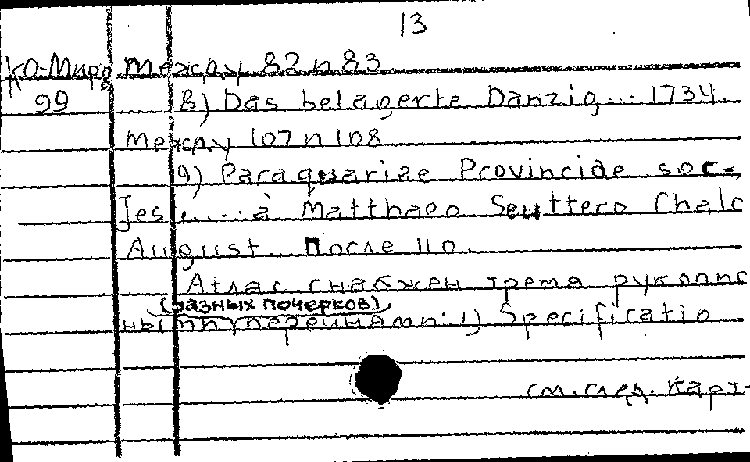 13
Ко-Мира между 82 и 83
99 8) Das belagerte Danzig... 1734.
между 107 и 108
9) Paraquariae Provinciae soc-
Jes..... à Matthaeo Seuttero Chalc
August. После 110.
Атлас снабжен тремя рукопис
(разных почерков)
ными перечнями: 1) Specificatio
см. след. карт